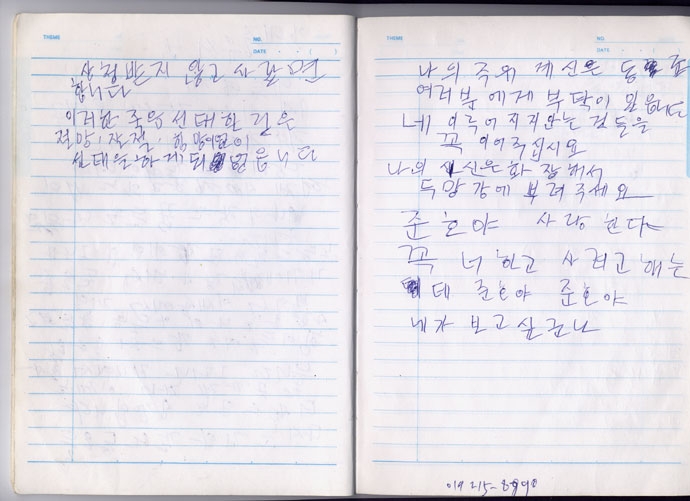 THEME
NO.
DATE . . ( )
상정받지 않고 사람면
합니다
이러한 죽음 선택한 길은
절망, 좌절,
선택을 하게 되 습니다
THEME
NO.
DATE . . ( )
나의 주위 계신은
여러분에게 부탁이 있읍니다
네 이루어지지안는 것들을
꼭 이어주십시요
나의 시신은 화장해서
두망강에 뿌려주세요
준호야 사랑한다
꼭 너하고 사려고 해는
데 준호야 준호야
네가 보고 싶구나
019 215-